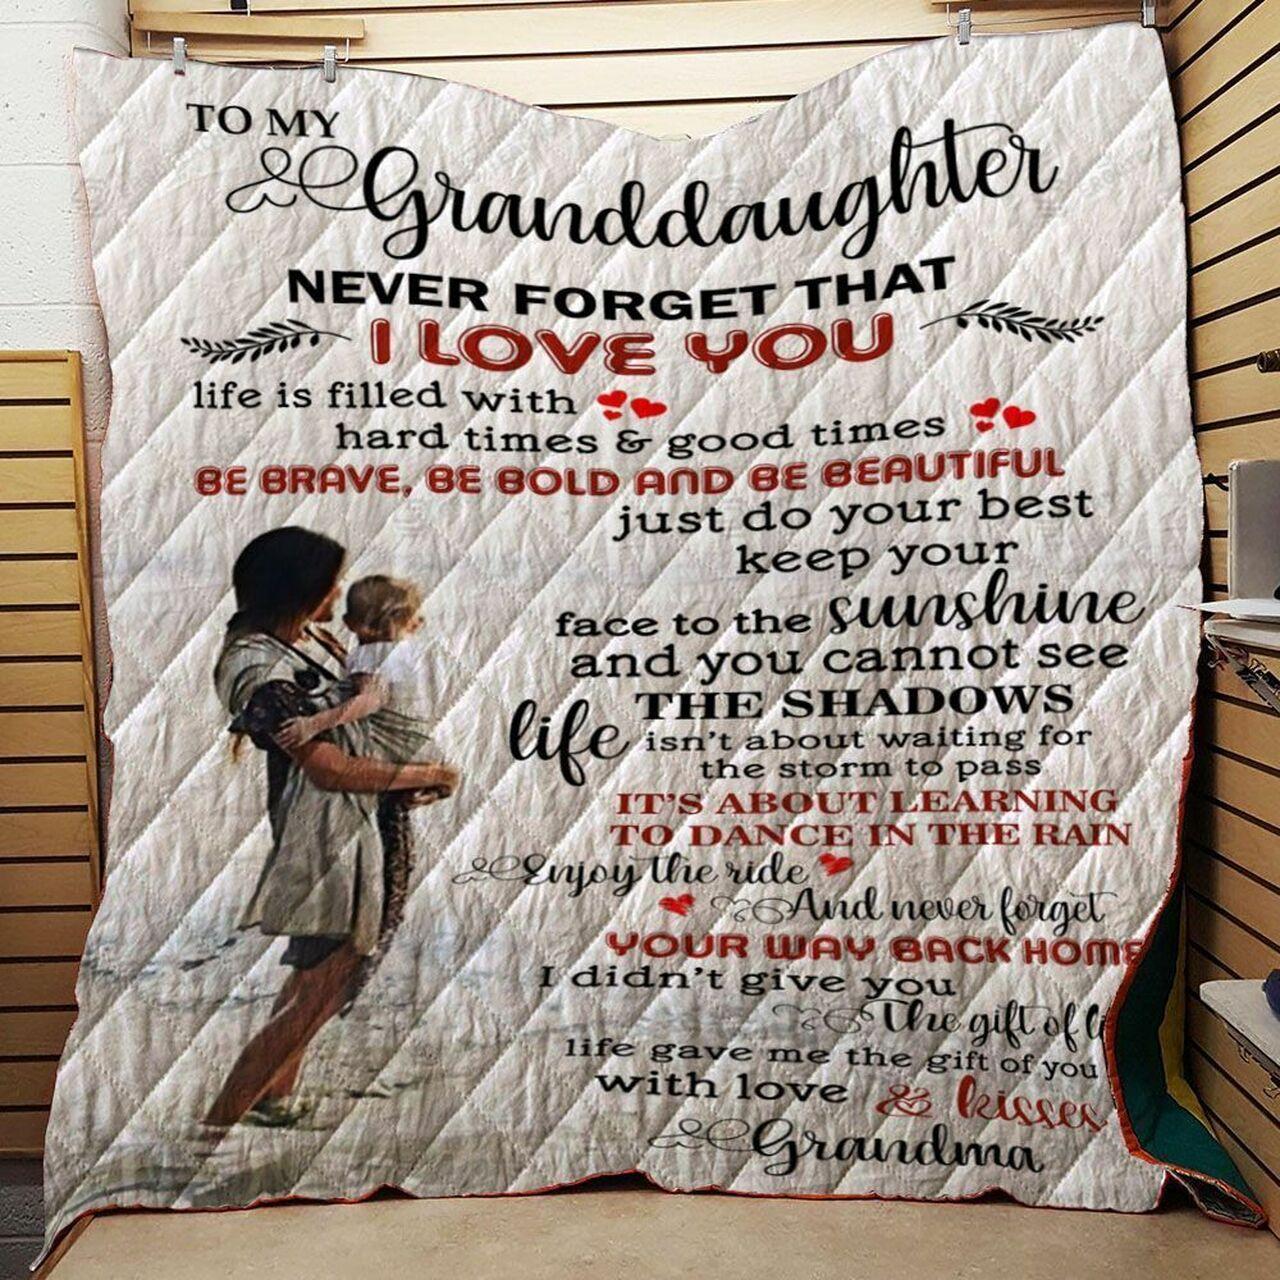 TO MY
Granddaughter
NEVER FORGET THAT
I LOVE YOU
life is filled with
hard times & good times
BE BRAVE, BE BOLD AND BE BEAUTIFUL
just do your best
keep your
face to the sunshine
and you cannot see
THE SHADOWS
life isn't about waiting for
the storm to pass
IT'S ABOUT LEARNING
TO DANCE IN THE RAIN
Enjoy the ride
And never forget
YOUR WAY BACK HOME
I didn't give you
The gift of li
life gave me the gift of you
with love & kisses
Grandma